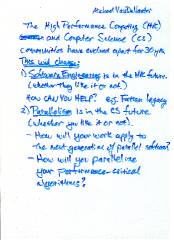 Michael VanDeVanter
The High Performance Computing (HPC)
and Computer Science (CS)
communities have evolved apart for 30 yrs
This will change:
1) Software Engineering is in the HPC future.
(whether they like it or not.)
HOW CAN YOU HELP? e.g. Fortran legacy
2) Parallelism is in the CS future
(whether you like it or not).
- How will your work apply to
the next generation of parallel software?
- How will you parallelize
your performance-critical
algorithms?